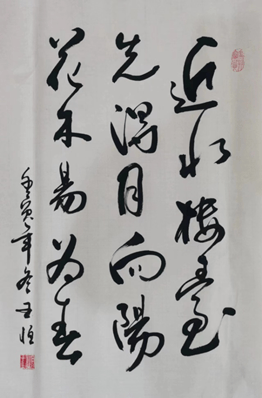 近水楼臺
先得月向陽
花木易为春
壬寅年冬王恒